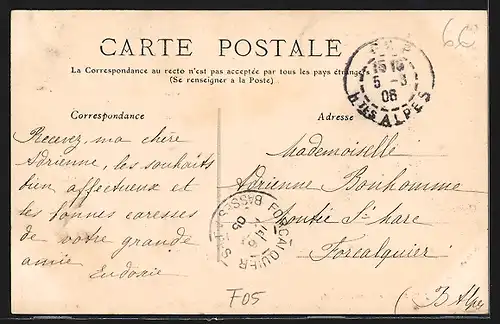 CARTE POSTALE
La Correspondance au recto n'est pas acceptée par tous les pays étrangers
(Se renseigner à la Poste)
Correspondance
Recevez, ma chère
Adrienne, les souhaits
bien affectueux et
les bonnes caresses
de votre grande
amie
Eudoxie
Adresse
Mademoiselle
Adrienne Bonhomme
St Marc
Forcalquier
(B Alpes
GAP
15 15
5 -3
06
HTES ALPES
FORCALQUIER
05
BASSES ALPES
60
F05